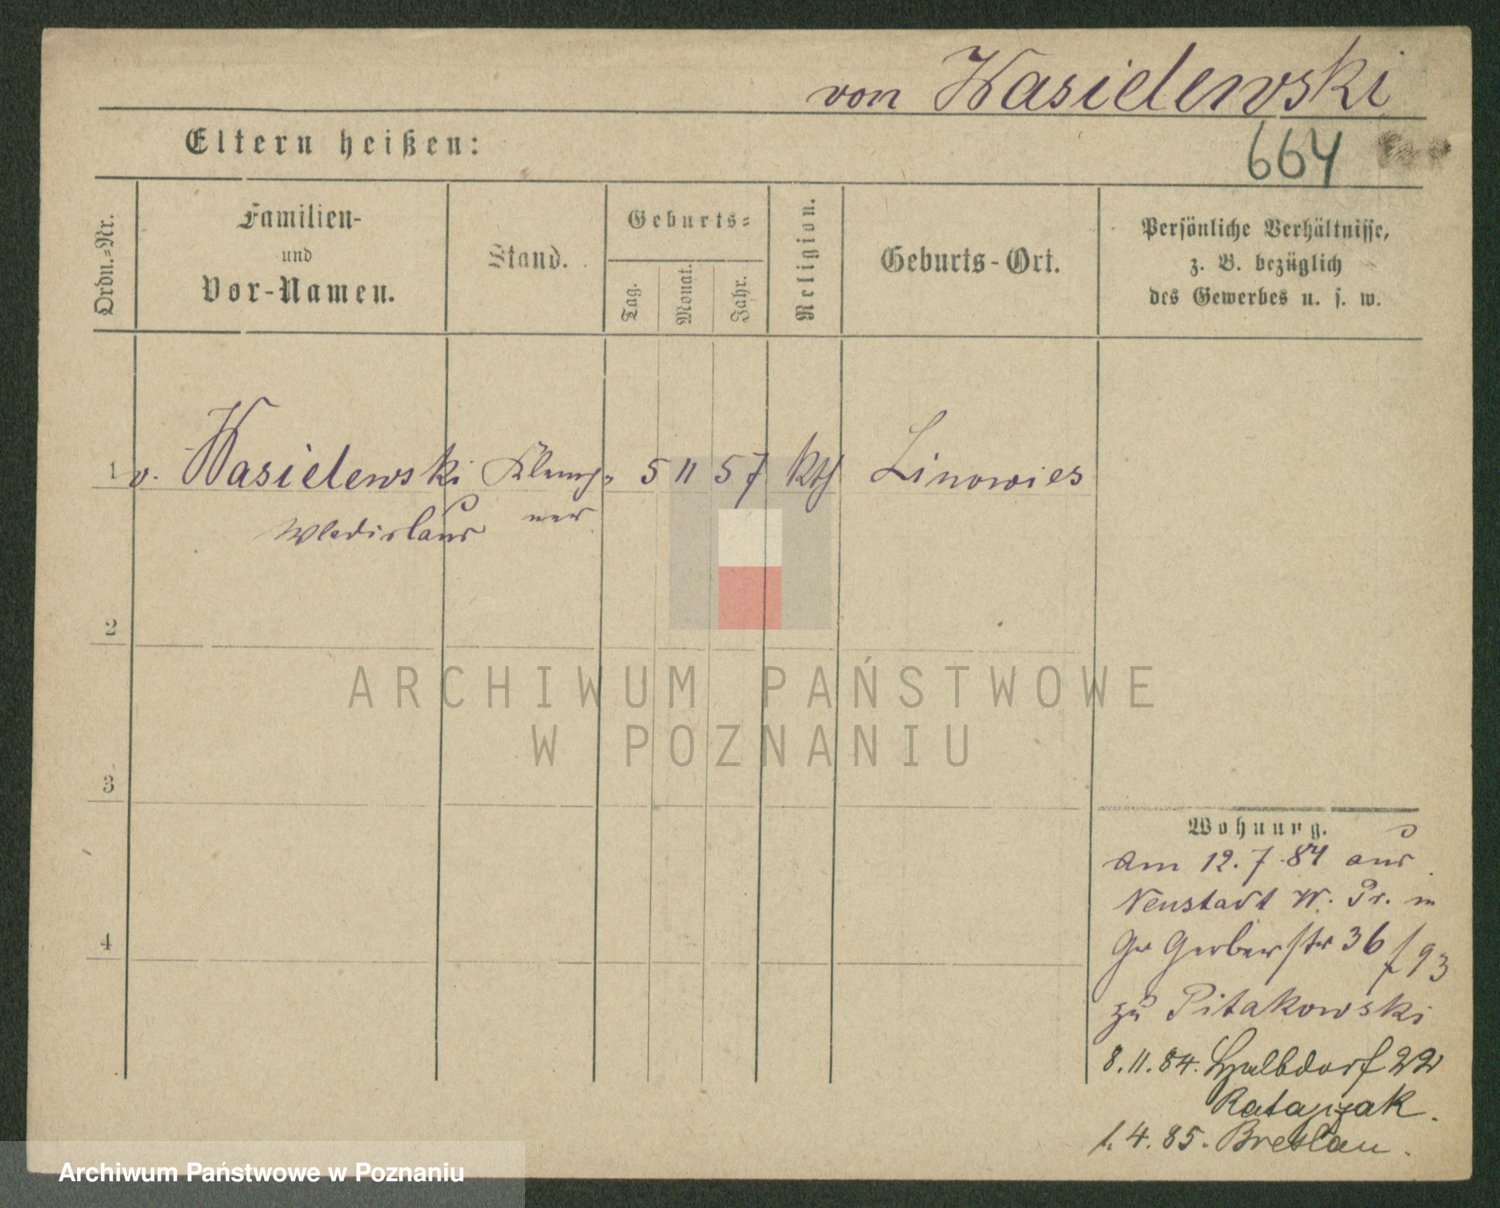 von Wasielewski
664
Eltern heißen:
Ordn.=Nr.
Familien-
und
Vor-Namen.
Stand.
Geburts=
Tag.
Monat.
Jahr.
Religion.
Geburts-Ort.
Persönliche Verhältnisse,
z. B. bezüglich
des Gewerbes u. s. w.
1 v. Wasielewski Klemp= 5 11 57 kth Linowies
Wladislaus ner
2
3
4
Wohnung.
Am 12.7.84 aus
Neustadt W. Pr. in
Gr Gerberstr 36 f 93
zu Pitakowski
8.11.84. Halbdorf 22
Ratajczak.
1.4.85. Breslau.
ARCHIWUM PAŃSTWOWE
W POZNANIU
Archiwum Państwowe w Poznaniu